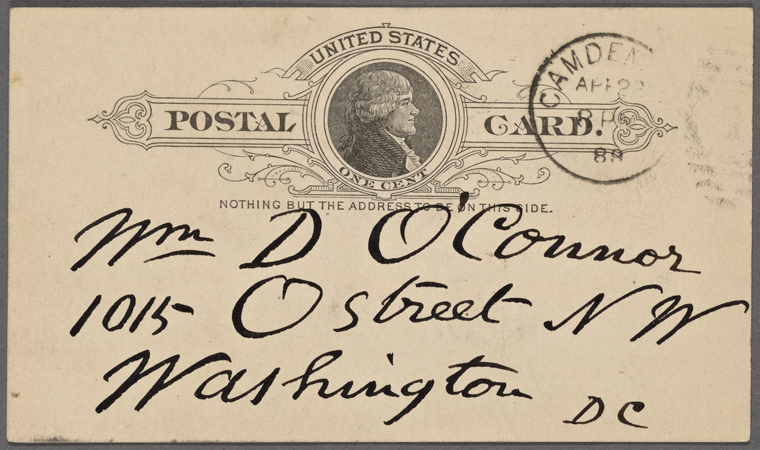 UNITED STATES
POSTAL CARD.
ONE CENT
CAMDEN
APR 22
8 P
89
NOTHING BUT THE ADDRESS TO BE ON THIS SIDE.
Wm D O'Connor
1015 O street N W
Washington D C